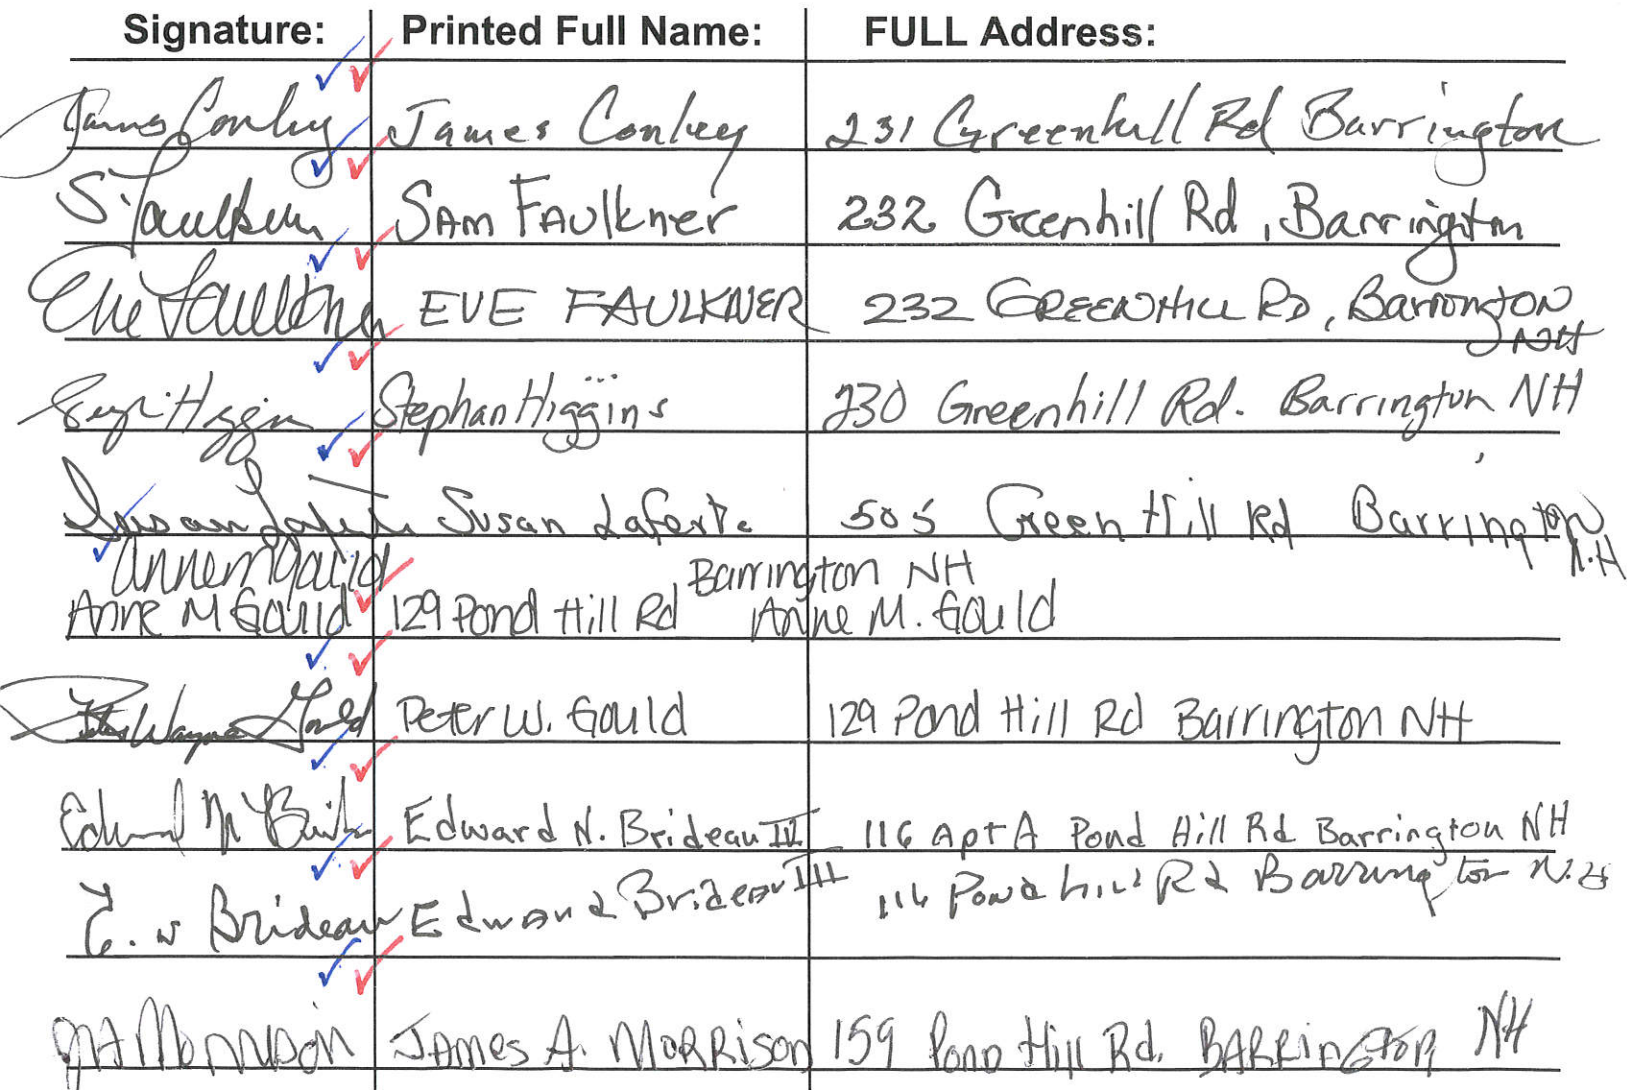 Signature: Printed Full Name: FULL Address:
James Conley James Conley 231 Greenhill Rd Barrington
S. Faulkner SAM FAUlkner 232 Greenhill Rd, Barrington
Eve Faulkner EVE FAULKNER 232 GREENHILL RD, Barrington
NH
Higgins Stephan Higgins 230 Greenhill Rd. Barrington NH
Susan Laferte Susan Laferte 505 Green Hill Rd Barrington
N.H
Anne M Gould Barrington NH
Anne M Gould 129 Pond Hill Rd Anne M. Gould
Peter Wayne Gould Peter W. Gould 129 Pond Hill Rd Barrington NH
Edward N Edward N. Brideau IV 116 Apt A Pond Hill Rd Barrington NH
E. N Brideau Edward Brideau III 116 Pond hill Rd Barrington N.H
JA Morrison JAMES A. MORRISON 159 POND Hill Rd. BARRINGTON NH